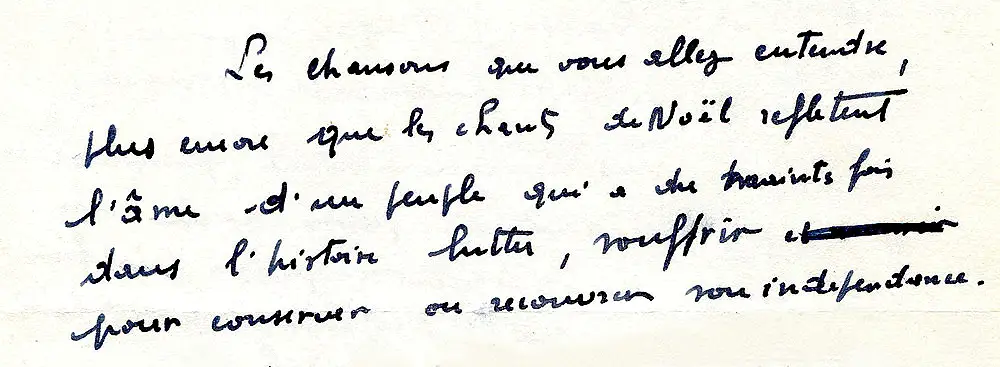 Les chansons que vous allez entendre,
plus encore que les chants de Noël reflètent
l'âme d'un peuple qui a du maints fois
dans l'histoire lutter, souffrir et
pour conserver ou recouvrer son indépendance.